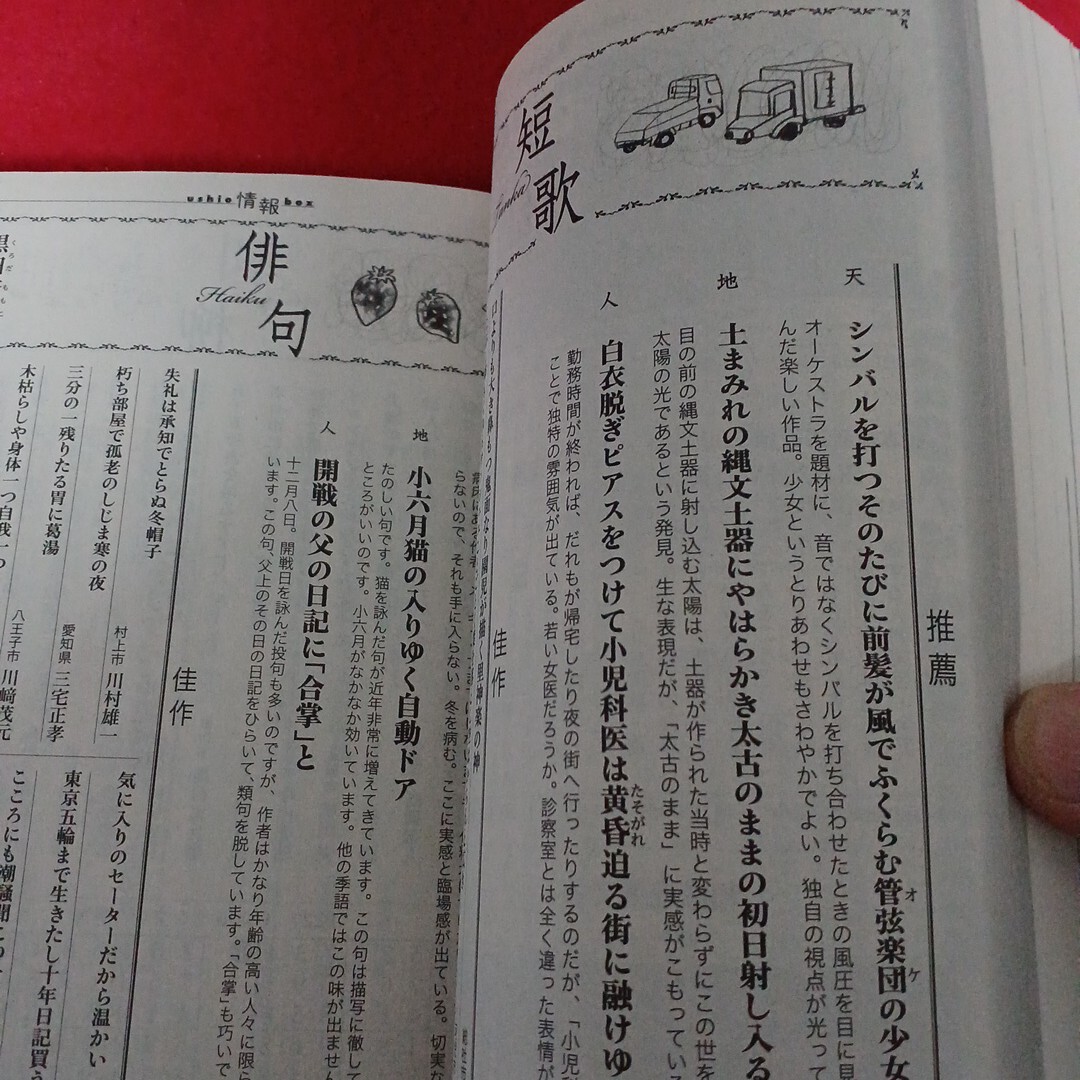 短歌
Tanka
推薦
天
シンバルを打つそのたびに前髪が風でふくらむ管弦楽団の少女
オケ
オーケストラを題材に、音ではなくシンバルを打ち合わせたときの風圧を目に見
んだ楽しい作品。少女というとりあわせもさわやかでよい。独自の視点が光って
地
土まみれの縄文土器にやはらかき太古のままの初日射し入る
目の前の縄文土器に射し込む太陽は、土器が作られた当時と変わらずにこの世を
太陽の光であるという発見。生な表現だが、「太古のまま」に実感がこもっている
人
白衣脱ぎピアスをつけて小児科医は黄昏迫る街に融けゆ
たそがれ
勤務時間が終われば、だれもが帰宅したり夜の街へ行ったりするのだが、「小児科
ことで独特の雰囲気が出ている。若い女医だろうか。診察室とは全く違った表情が
佳作
ushio情報box
俳句
Haiku
らないので、それも手に入らない。冬を病む。ここに実感と臨場感が出ている。切実な
地
小六月猫の入りゆく自動ドア
たのしい句です。猫を詠んだ句が近年非常に増えてきています。この句は描写に徹して
ところがいいのです。小六月がなかなか効いています。他の季語ではこの味が出ません
人
開戦の父の日記に「合掌」と
十二月八日。開戦日を詠んだ投句も多いのですが、作者はかなり年齢の高い人々に限ら
います。この句、父上のその日の日記をひらいて、類句を脱しています。「合掌」も巧いで
佳作
失礼は承知でとらぬ冬帽子
村上市 川村雄一
朽ち部屋で孤老のしじま寒の夜
愛知県 三宅正孝
三分の一残りたる胃に葛湯
八王子市 川﨑茂元
木枯らしや身体一つ自我一つ
気に入りのセーターだから温かい
東京五輪まで生きたし十年日記買う
こころにも潮騒聞こ